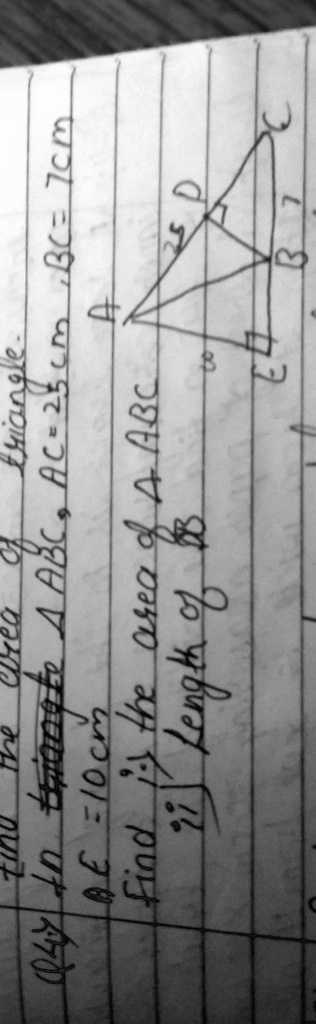 Find the area of triangle.
Q4) In Δ ABC, AC = 25cm, BC = 7cm
AE = 10cm
Find i) the area of Δ ABC
ii) Length of DB
A
D
C
25
7
B
E